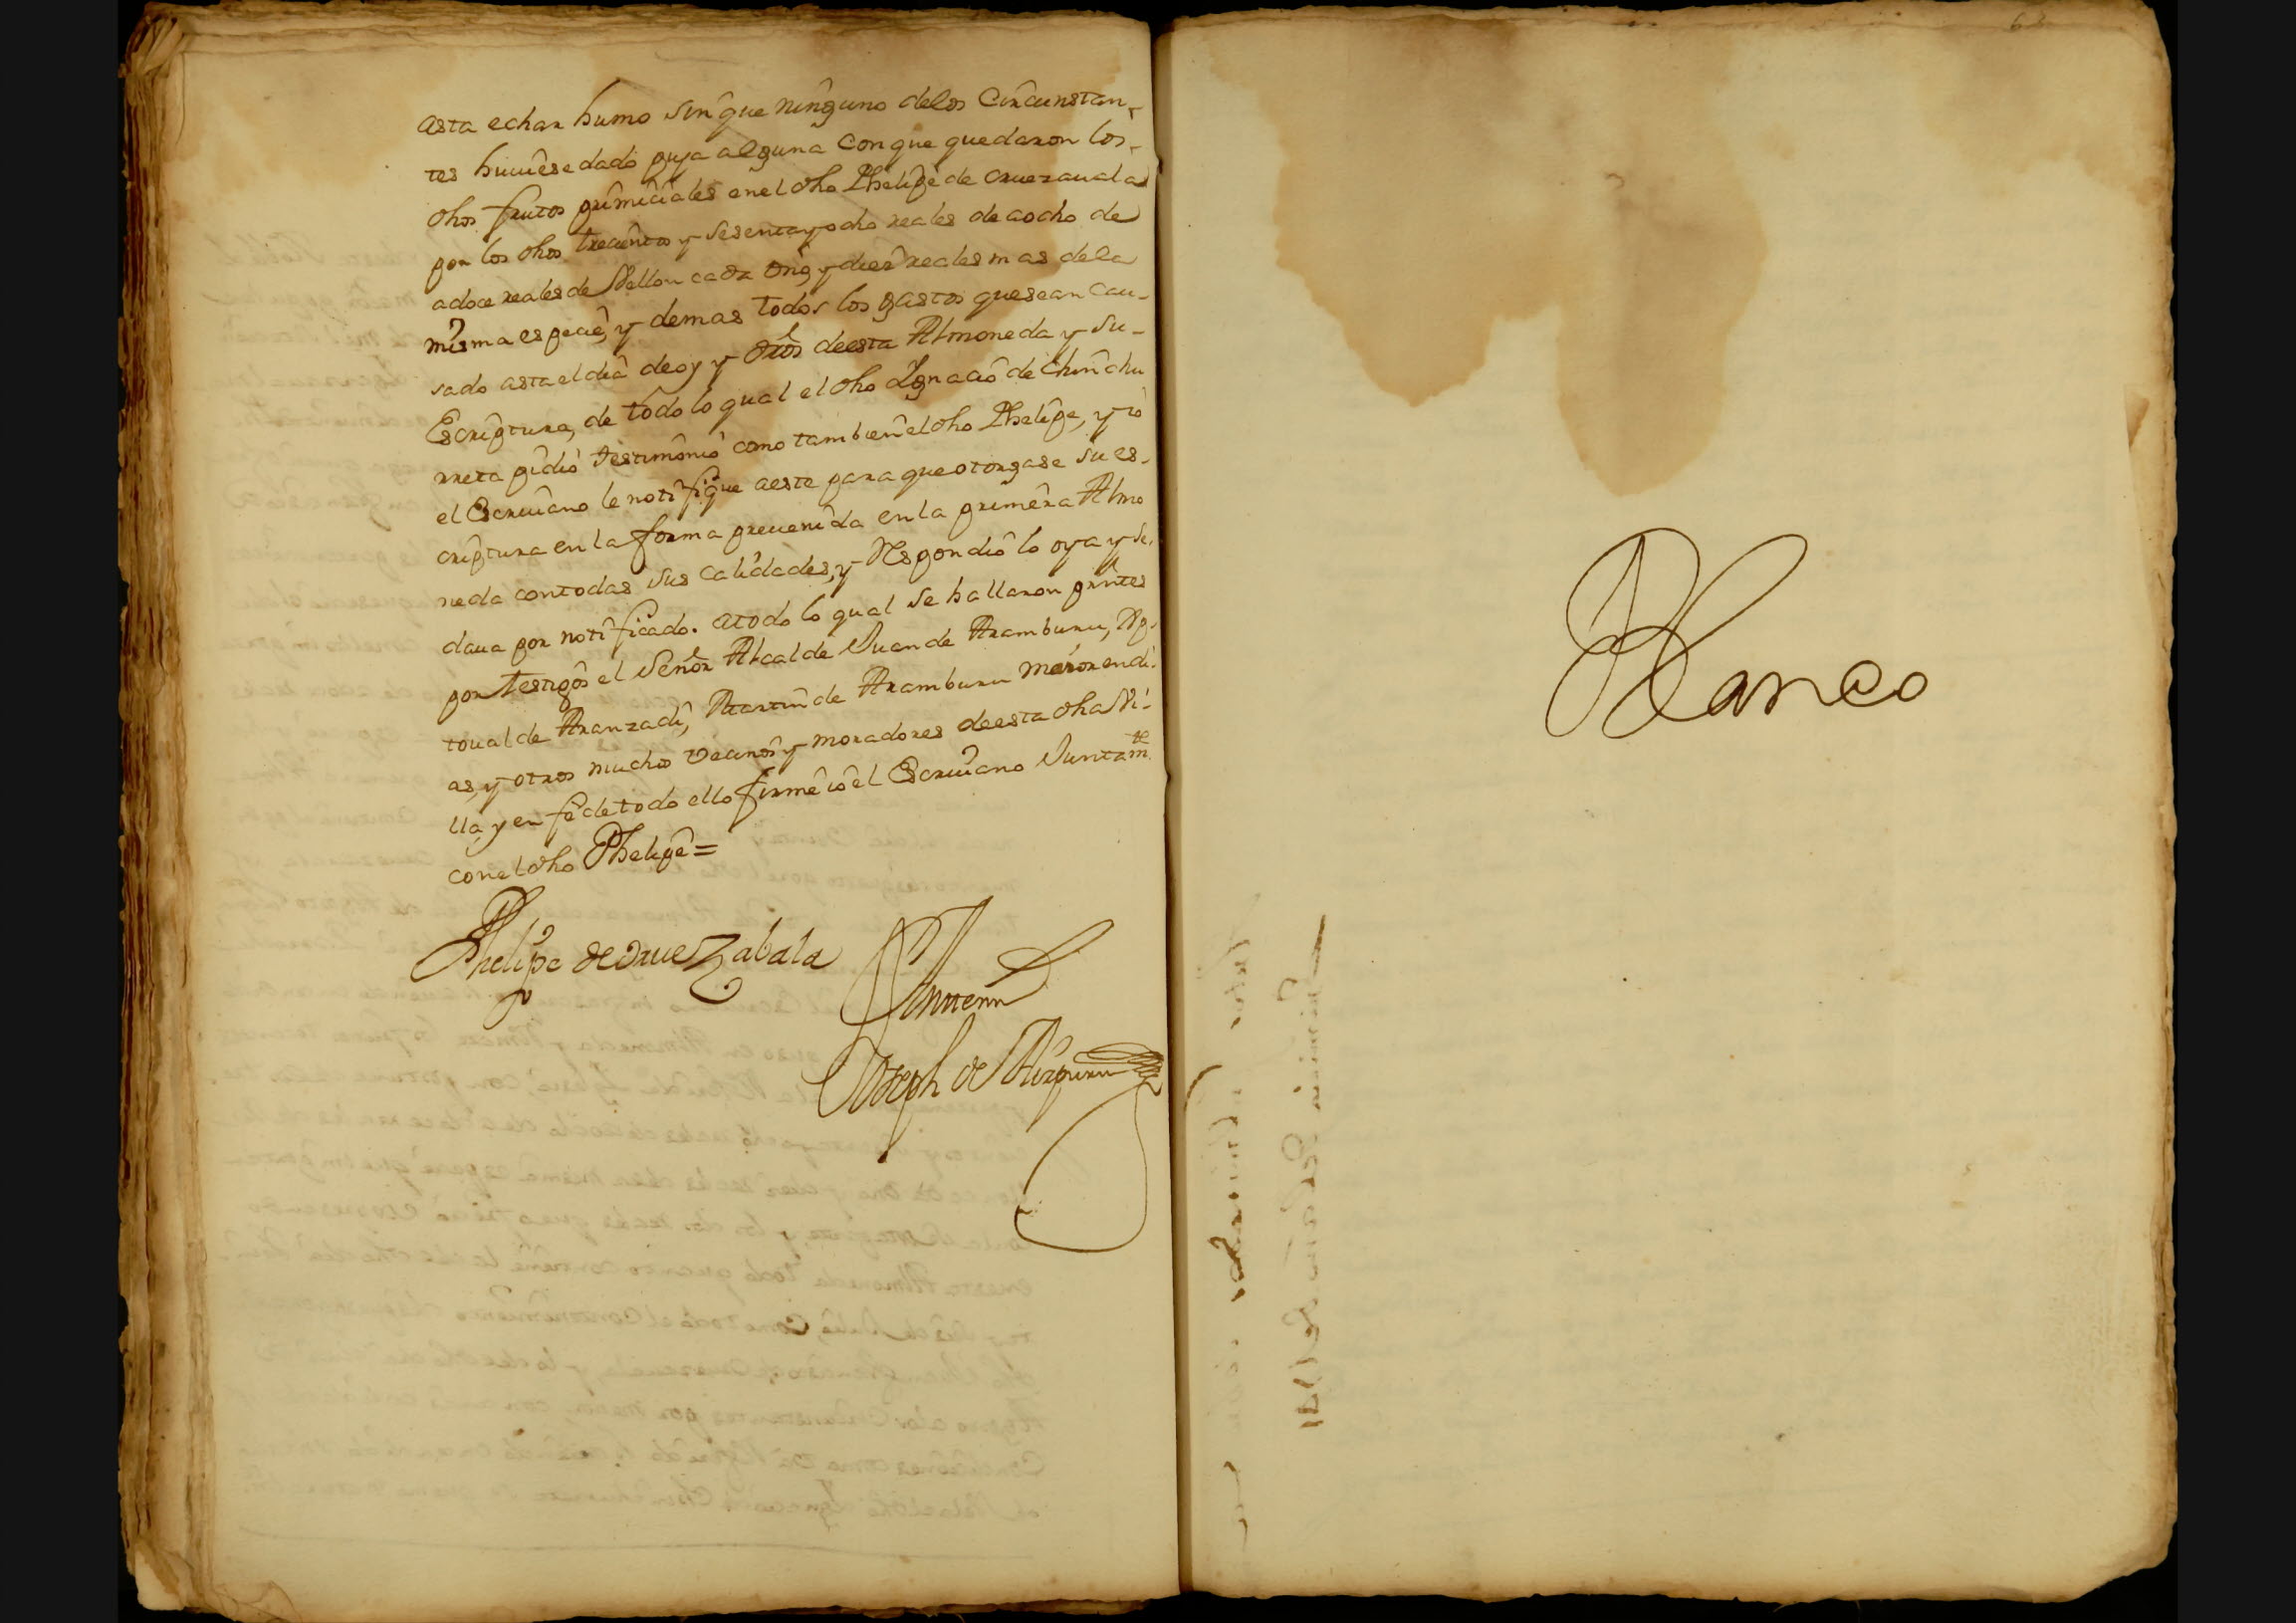 asta echar humo sin que ninguno delos Circunstan-
tes huuiese dado puja alguna con que quedaron los
dhos frutos primiciales en el dho Phelipe de oruezauala
por los dhos trecientos y sesenta y ocho reales de aocho de
adoce reales de Vellon cada Uno, y diez reales mas dela
misma especie, y demas todos los gastos que sean cau-
sado asta el dia de oy y dros de esta Almoneda y su-
Escriptura, de todo lo qual el dho Ygnacio de Chinchu
rreta pidio testimonio como tambien el dho Phelipe, y io
el Escriuano le notifique a este para que otorgase su es-
criptura en la forma preuenida en la primera Almo
neda con todas sus calidades, y Respondio lo oya y se
daua por notificado. atodo lo qual se hallaron prntes
por testigos el Señor Alcalde Juan de Aramburu,
toual de Aranzadi, Martin de Aramburu maior en di-
as, y otros muchos vecinos y moradores de esta dha Vi-
lla, y en fe de todo ello firme io el Escriuano Juntamte
con el dho Phelipe =
Phelipe de oruezabala
Antemi
Joseph de Aizpuru
Blanco